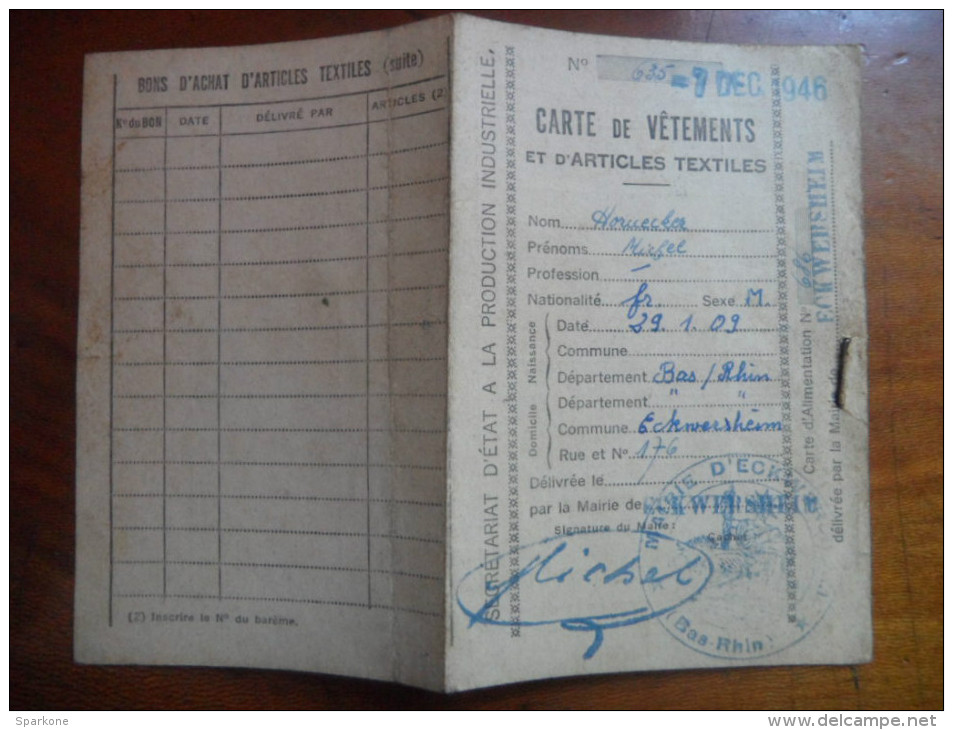 BONS D'ACHAT D'ARTICLES TEXTILES (suite)
Nº du BON DATE DÉLIVRÉ PAR ARTICLES (2)
(2) Inscrire le Nº du barème.
SECRÉTARIAT D'ÉTAT A LA PRODUCTION INDUSTRIELLE,
Nº 635
7 DEC. 1946
CARTE DE VÊTEMENTS
ET D'ARTICLES TEXTILES
Nom Hornecker
Prénoms Michel
Profession —
Nationalité fr. Sexe M.
Naissance
Date 29.1.09
Commune
Département Bas/Rhin
Domicile
Département " "
Commune Eckwersheim
Rue et Nº 176
Délivrée le
par la Mairie de ECKWERSHEIM
Signature du Maire: Cachet
Michel
(Bas-Rhin)
Carte d'Alimentation Nº 686
délivrée par la Mairie de
ECKWERSHEIM
Sparkone
www.delcampe.net